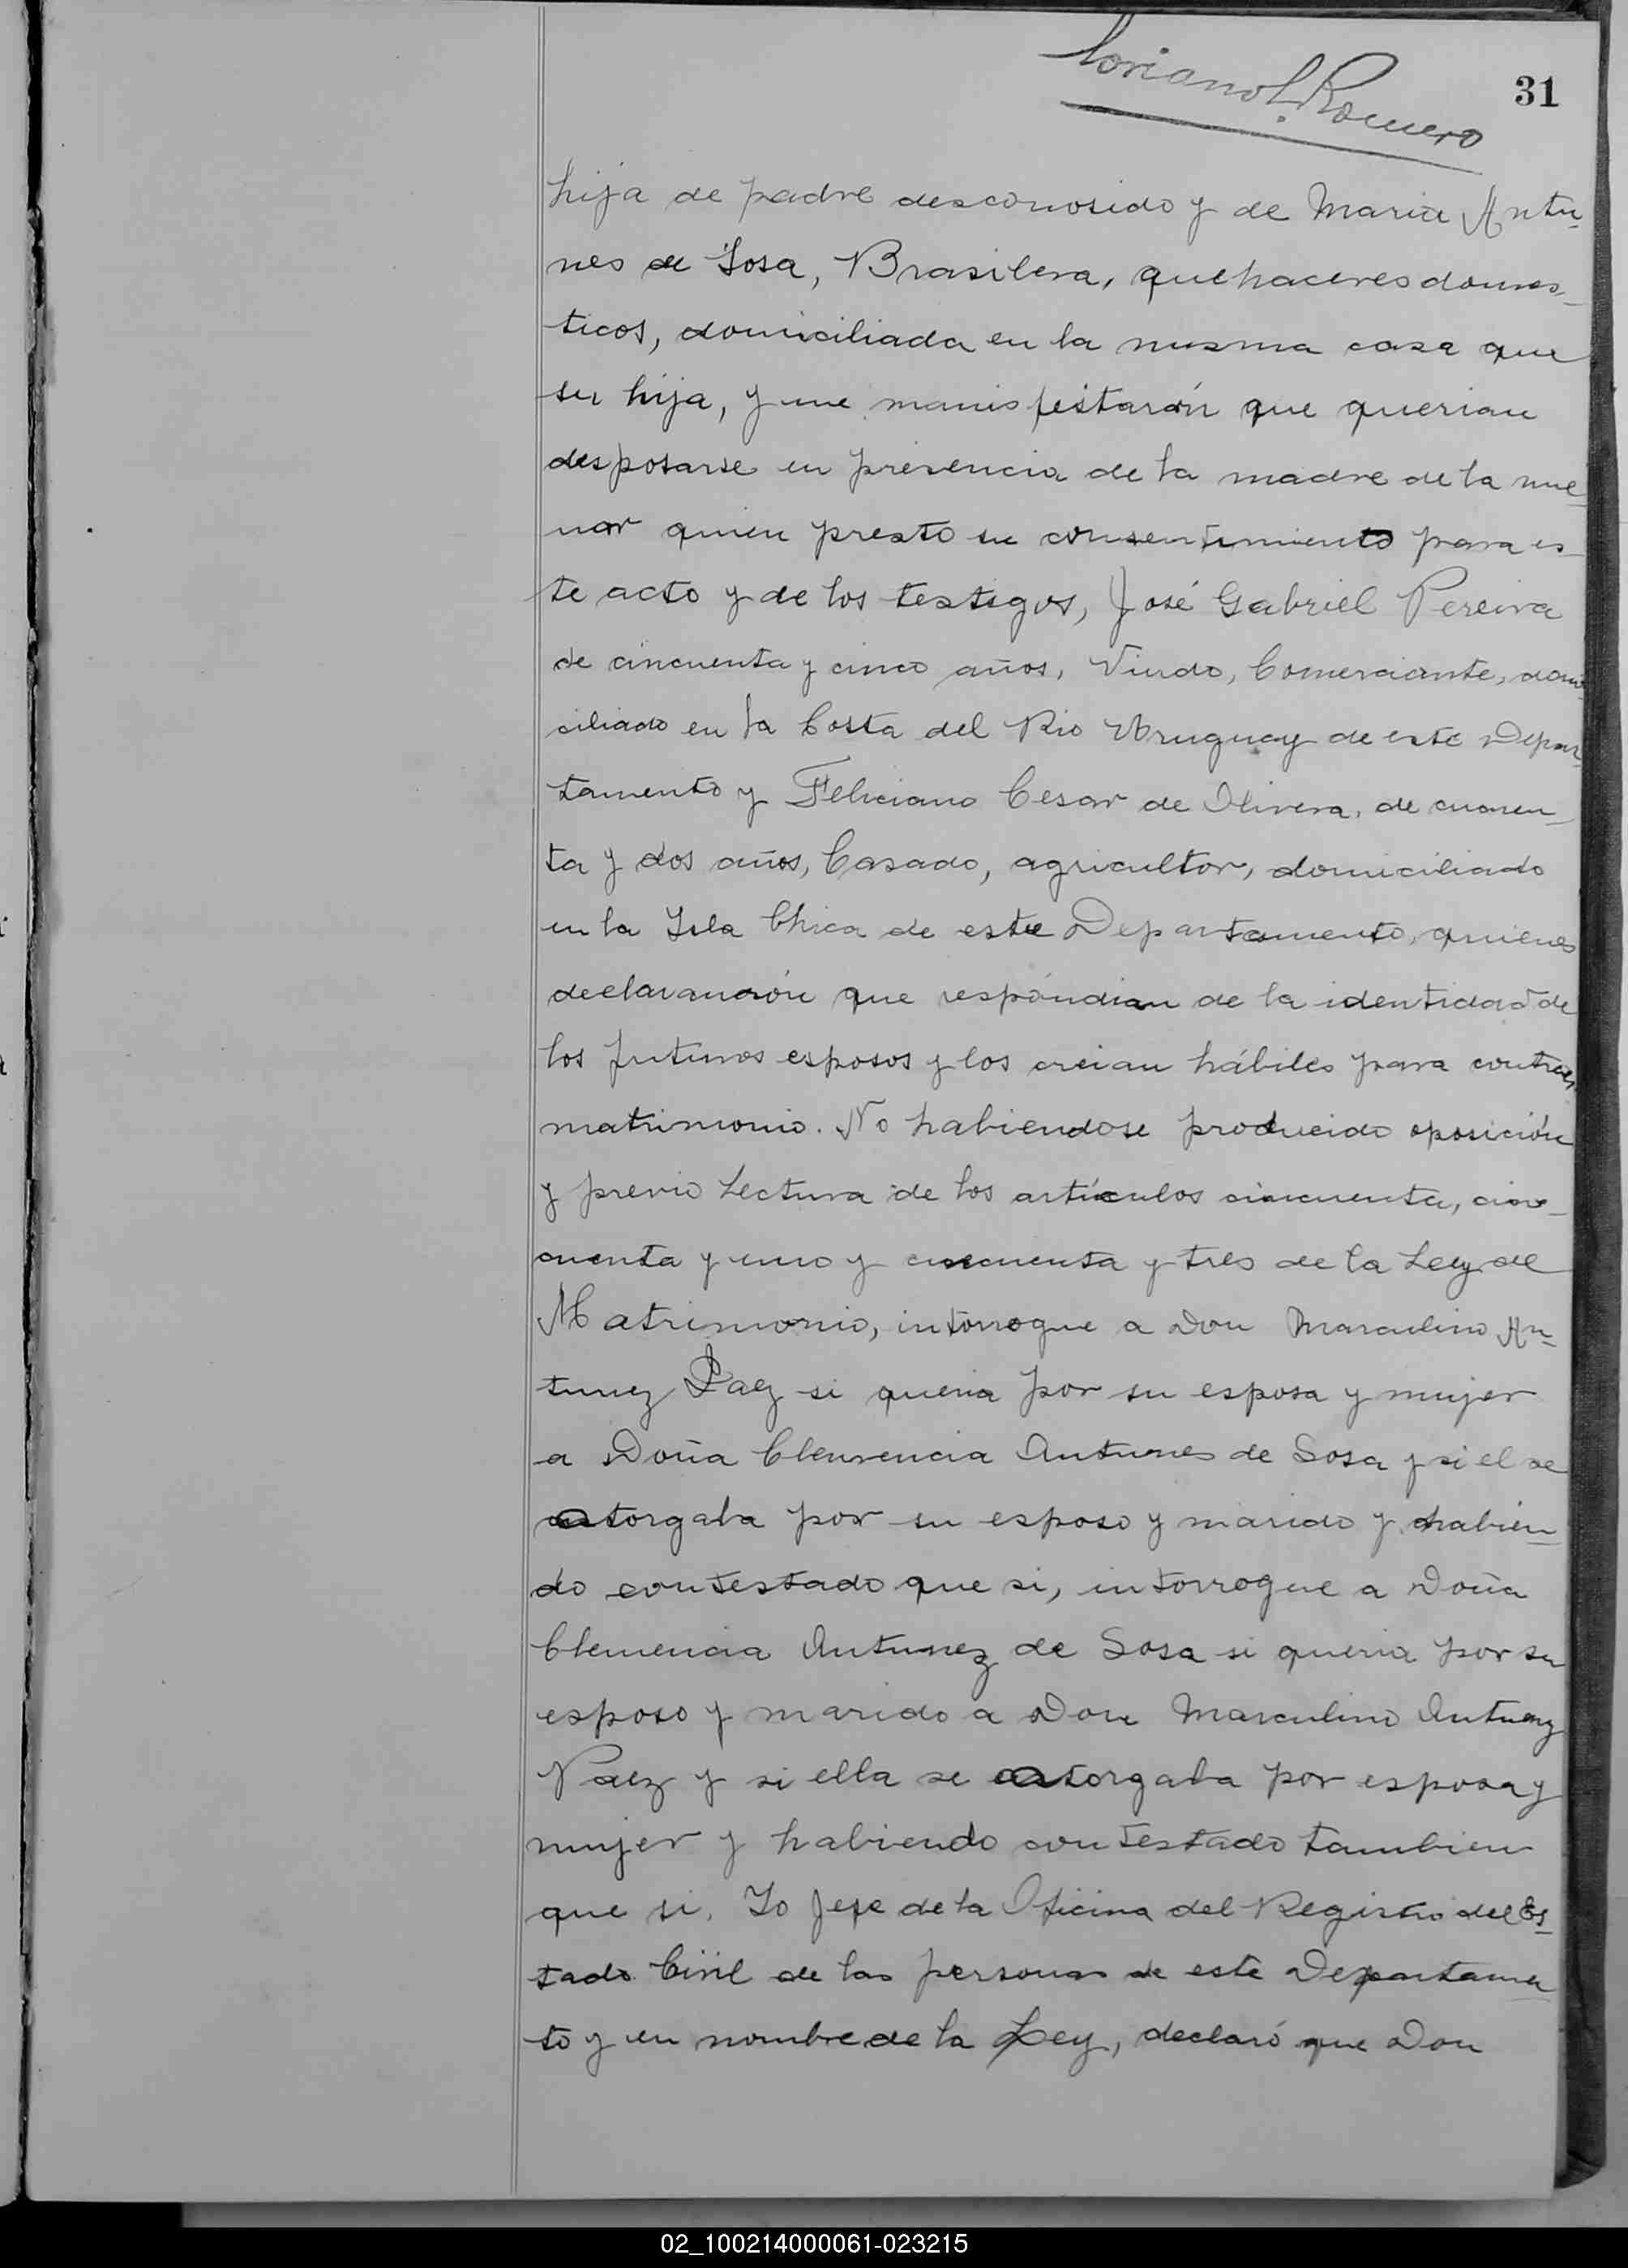 Soriano L. Romero
31
hija de padre desconosido y de Maria Antu-
nes de Sosa, Brasilera, quehaceres domes-
ticos, domiciliada en la misma casa que
su hija, y me manisfestarón que querian
desposarse en presencia de la madre de la me-
nor quien presto su consentimiento para es-
te acto y de los testigos, José Gabriel Pereira
de cincuenta y cinco años, Viudo, Comerciante, domi-
ciliado en la Costa del Rio Uruguay de este Depar-
tamento y Feliciano Cesar de Olivera, de cuaren-
ta y dos años, Casado, agricultor, domiciliado
en la Isla Chica de este Departamento, quienes
declararón que respóndian de la identidad de
los futuros esposos y los creian hábiles para contraer
matrimonio. No habiendose producido oposición
y previo Lectura de los artículos cincuenta, cin-
cuenta y uno y cincuenta y tres de la Ley de
Matrimonio, intorrogue a Don Marculino An-
tunez Paez si queria por su esposa y mujer
a Doña Clemencia Antunes de Sosa y si el se
otorgaba por su esposo y marido y habien-
do contestado que si, intorrogue a Doña
Clemencia Antunez de Sosa si queria por su
esposo y marido a Don Marculino Antunez
Paez y si ella se otorgaba por esposa y
mujer y habiendo contestado tambien
que si. Yo Jefe de la Oficina del Registro del Es-
tado Civil de las personas de este Departamen-
to y en nombre de la Ley, declaró que Don
02_100214000061-023215